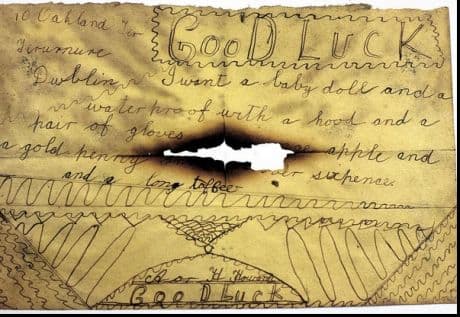 10 Oakland Ter
GOOD LUCK
Terenure
Dublin I want a baby doll and a
waterproof with a hood and a
pair of gloves apple and
a gold penny sixpence
and a long toffee
A or H Howard
GOOD LUCK